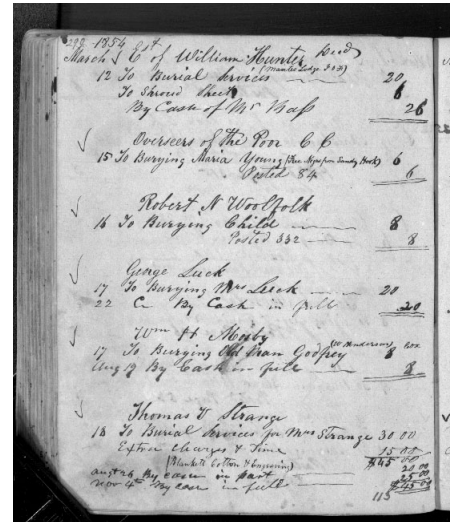 298 1854
March Est of William Hunter Decd
(Manteo Lodge I.O.F)
12 To Burial Services 20
To Shroud 6
By Cash of Mr Bass 26
Overseers of the Poor C C
15 To Burying Maria Young (Free from Sandy Hook) 6
Posted 84 6
Robert N Woolfolk
16 To Burying Child 8
Posted 332 8
George Luck
17 To Burying Mrs Luck 20
22 Cr By Cash in full 20
Wm H Mosby
17 To Burying Old Man Godfrey 8
Aug 19 By Cash in full 8
Thomas V Strange
18 To Burial Services for Mrs Strange 30 00
Extra charges & Time 15 00
(Blankets Cotton & Engraving) $45 00
Augt 26 By cash in part 20 00
Nov 4th By cash in full 25 00
$45 00
115